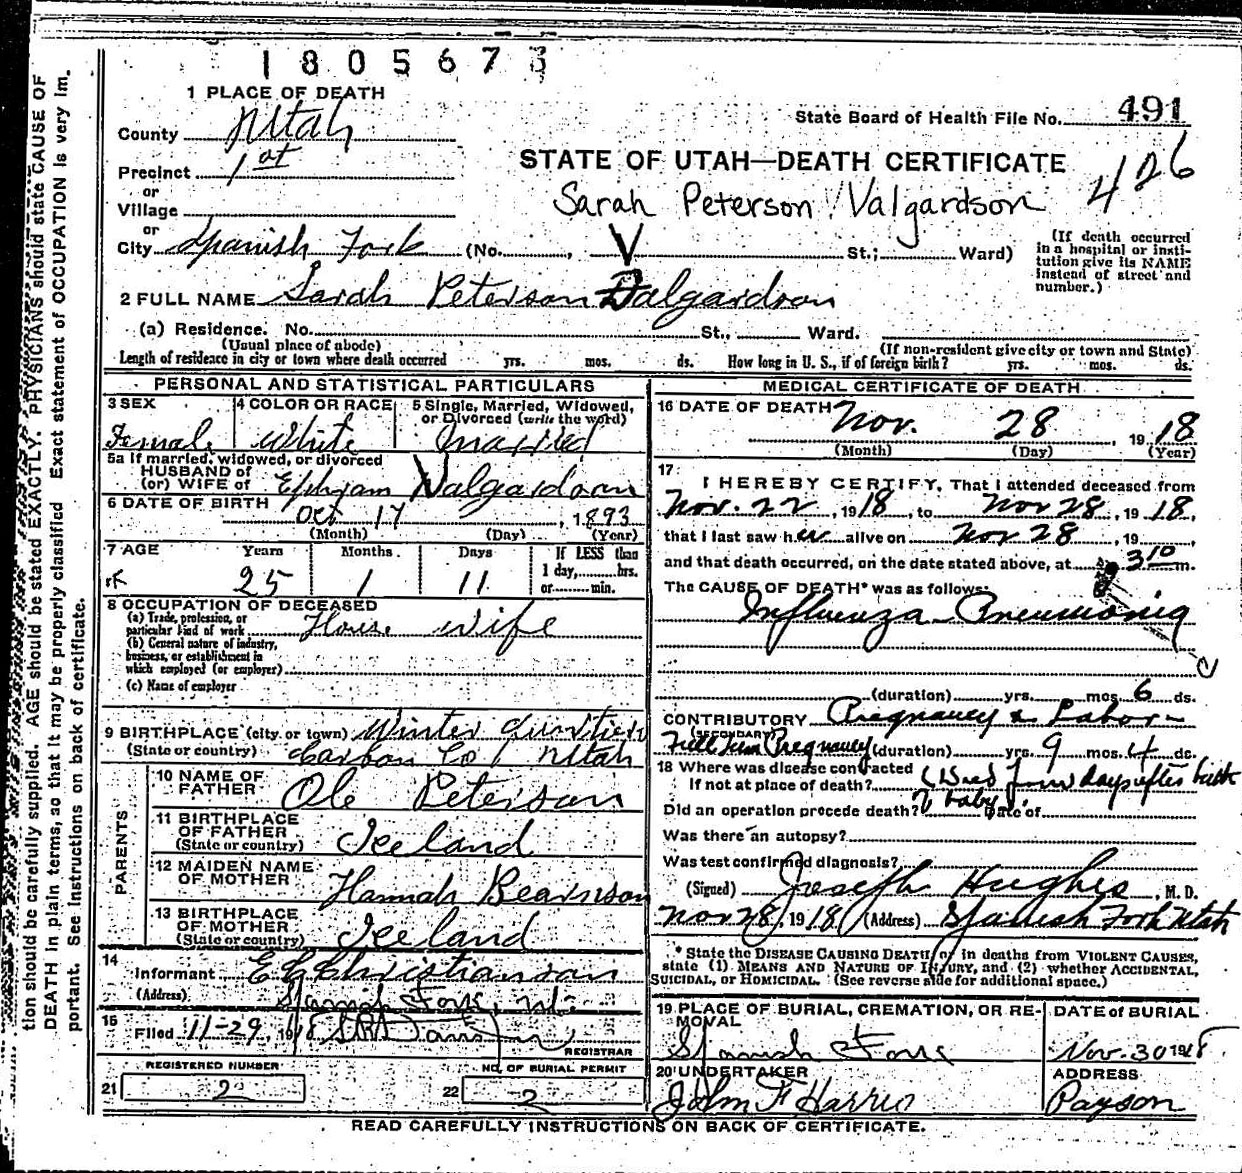 1805673
1 PLACE OF DEATH
County Utah
State Board of Health File No. 491
Precinct 1st
STATE OF UTAH—DEATH CERTIFICATE
426
or
Village
Sarah Peterson Valgardson
or
City Spanish Fork (No. , St.; Ward)
V
(If death occurred in a hospital or institution give its NAME instead of street and number.)
2 FULL NAME Sarah Peterson Dalgardson
(a) Residence. No. St., Ward.
(Usual place of abode) (If non-resident give city or town and State)
Length of residence in city or town where death occurred yrs. mos. ds. How long in U. S., if of foreign birth? yrs. mos. ds.
PERSONAL AND STATISTICAL PARTICULARS
3 SEX Female
4 COLOR OR RACE White
5 Single, Married, Widowed, or Divorced (write the word) Married
5a If married, widowed, or divorced
HUSBAND of
(or) WIFE of Ephram Valgardson
6 DATE OF BIRTH
Oct 17, 1893
(Month) (Day) (Year)
7 AGE Years Months Days If LESS than
1 day, hrs.
25 1 11 or min.
8 OCCUPATION OF DECEASED
(a) Trade, profession, or
particular kind of work House wife
(b) General nature of industry,
business, or establishment in
which employed (or employer)
(c) Name of employer
9 BIRTHPLACE (city or town) Winter Quarters
(State or country) Carbon Co Utah
PARENTS
10 NAME OF
FATHER Ole Peterson
11 BIRTHPLACE
OF FATHER
(State or country) Iceland
12 MAIDEN NAME
OF MOTHER Hannah Bearnson
13 BIRTHPLACE
OF MOTHER
(State or country) Iceland
14
Informant E C Christianson
(Address) Spanish Fork, Ut.
15
Filed 11-29 1918
REGISTRAR
REGISTERED NUMBER
21 2
NO. OF BURIAL PERMIT
22 2
MEDICAL CERTIFICATE OF DEATH
16 DATE OF DEATH
Nov. 28, 1918
(Month) (Day) (Year)
17
I HEREBY CERTIFY, That I attended deceased from
Nov. 22, 1918, to Nov 28, 1918,
that I last saw her alive on Nov 28, 19 ,
and that death occurred, on the date stated above, at 3 10 m.
The CAUSE OF DEATH* was as follows:
Influenza Pneumonia
(duration) yrs. mos. 6 ds.
CONTRIBUTORY Pregnancy & Labor
(SECONDARY)
Full term Pregnancy (duration) yrs. 9 mos. 4 ds.
18 Where was disease contracted
If not at place of death? (Died four days after birth
of baby)
Did an operation precede death? Date of
Was there an autopsy?
Was test confirmed diagnosis?
(Signed) Joseph Hughes, M. D.
Nov 28, 1918 (Address) Spanish Fork Utah
* State the DISEASE CAUSING DEATH, or in deaths from VIOLENT CAUSES,
state (1) MEANS AND NATURE OF INJURY, and (2) whether ACCIDENTAL,
SUICIDAL, or HOMICIDAL. (See reverse side for additional space.)
19 PLACE OF BURIAL, CREMATION, OR RE-
MOVAL
Spanish Fork
DATE of BURIAL
Nov. 30 1918
20 UNDERTAKER
John F Harris
ADDRESS
Payson
READ CAREFULLY INSTRUCTIONS ON BACK OF CERTIFICATE.
tion should be carefully supplied. AGE should be stated EXACTLY. PHYSICIANS should state CAUSE OF
DEATH in plain terms, so that it may be properly classified Exact statement of OCCUPATION is very im.
portant. See Instructions on back of certificate.